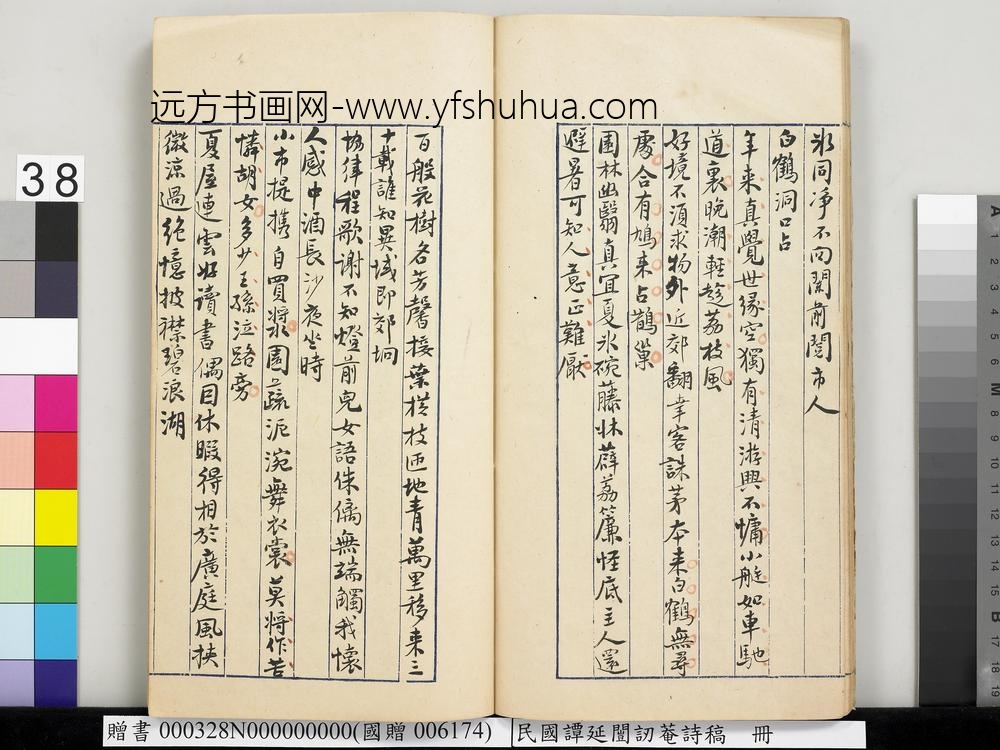 远方书画网-www.yfshuhua.com
38
冰同淨不向闌前鬧市人
白鶴洞口占
年来真覺世緣空獨有清游興不慵小艇如車馳
道裏晚潮輕趁荔枝風
好境不須求物外近郊翻幸客誅茅本来白鶴無尋
處合有鳩来占鵲巢
園林幽翳真宜夏氷碗藤牀薜荔簾怪底主人還
避暑可知人意正難厭
百般花樹各芳馨接葉橫枝匝地青萬里移来三
十載誰知異域即郊坰
協律程歌謝不知燈前兒女語侏儒無端觸我懷
人感中酒長沙夜坐時
小市提携自買漿園蔬泥涴舞衣裳莫將作苦
憐胡女多少王孫泣路旁
夏屋連雲好讀書偶因休暇得相於廣庭風挾
微涼過絕憶披襟碧浪湖
贈書 000328N000000000(國贈 006174)
民國譚延闓訒菴詩稿 冊